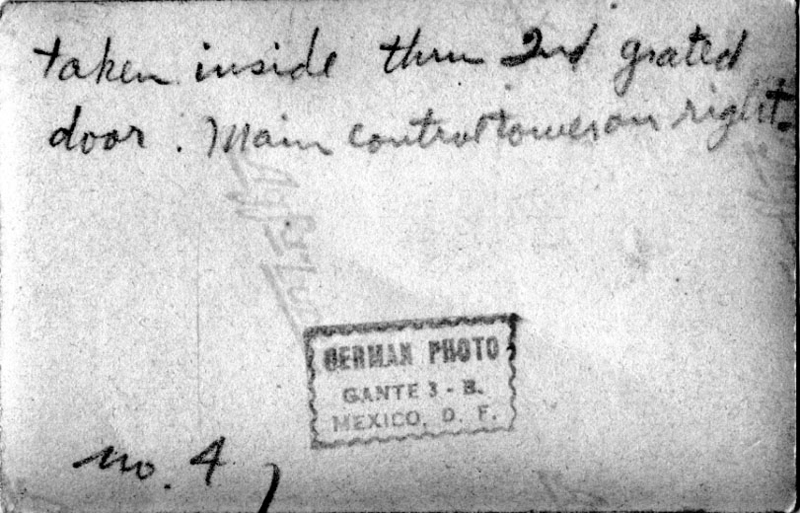 taken inside thru 2nd grated
door. Main control tower on right.
GERMAN PHOTO
GANTE 3 - B.
MEXICO, D. F.
no. 4